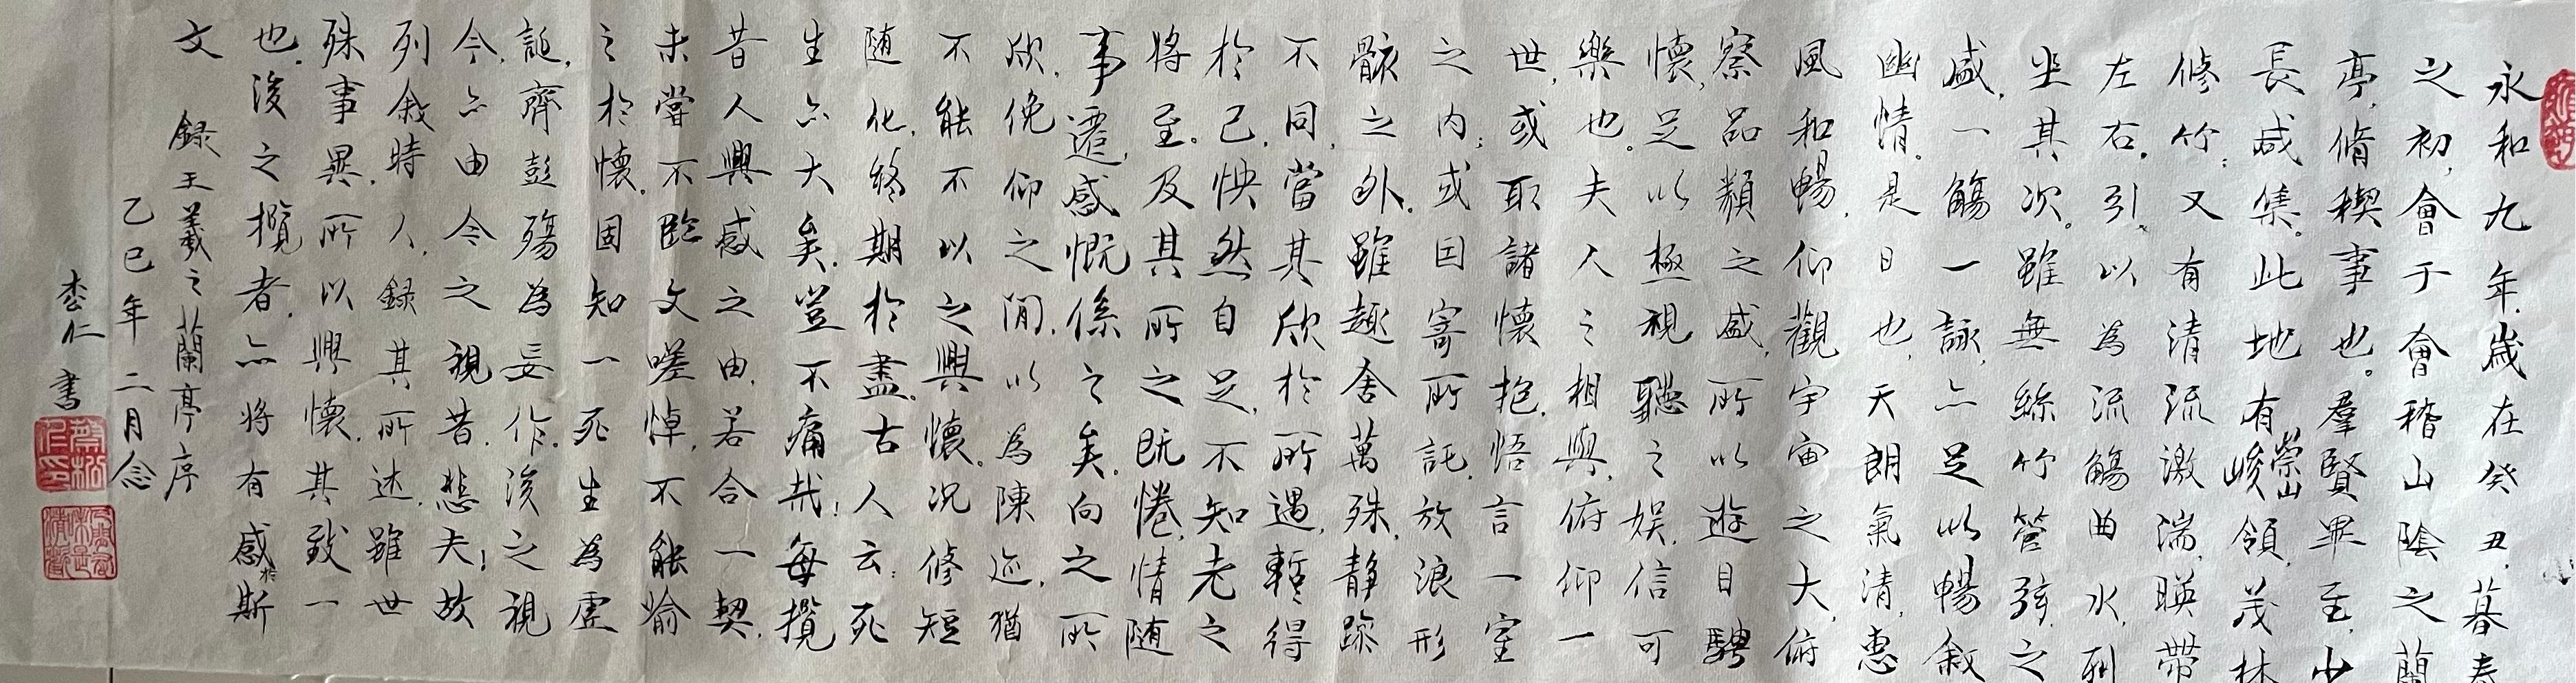 永和九年,歲在癸丑,暮春
之初,會于會稽山陰之蘭
亭,脩稧事也。羣賢畢至,少
長咸集。此地有崇山峻領,茂林
修竹;又有清流激湍,暎帶
左右,引以為流觴曲水,列
坐其次。雖無絲竹管弦之
盛,一觴一詠,亦足以暢敘
幽情。是日也,天朗氣清,惠
風和暢,仰觀宇宙之大,俯
察品類之盛,所以遊目騁
懷,足以極視聽之娛,信可
樂也。夫人之相與,俯仰一
世,或取諸懷抱,悟言一室
之內;或因寄所託,放浪形
骸之外。雖趣舍萬殊,静躁
不同,當其欣於所遇,暫得
於己,怏然自足,不知老之
將至。及其所之既惓,情随
事遷,感慨係之矣。向之所
欣,俛仰之閒,以為陳迹,猶
不能不以之興懷。況修短
随化,終期於盡。古人云:死
生亦大矣。豈不痛哉!每攬
昔人興感之由,若合一契,
未嘗不臨文嗟悼,不能喻
之於懷。固知一死生為虛
誕,齊彭殤為妄作。後之視
今,亦由今之視昔。悲夫!故
列敘時人,録其所述,雖世
殊事異,所以興懷,其致一
也。後之攬者,亦将有感於斯
文 録王羲之蘭亭序
乙巳年二月念
仁书